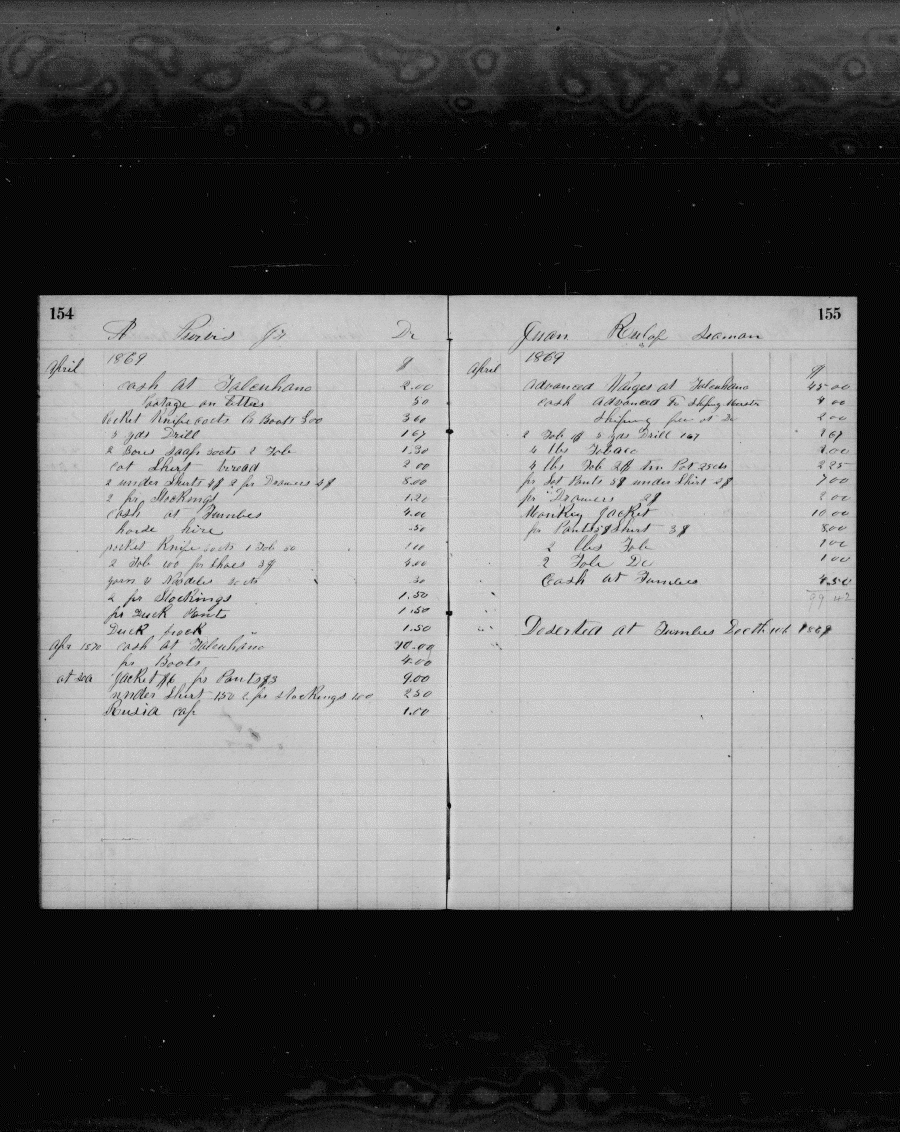 154
Jr Dr
1869
April $
cash at Talcuhano 2.00
Postage on letters 50
Pocket Knife 60cts Boots 300 360
5 yds Drill 167
2 Bars soap 30cts 2 Tob 1.30
cot Shirt 2 00
2 under Shirts 4$ 2 pr Drawers 4$ 8.00
2 pr Stockings 1.20
cash at Tumbes 4.00
horse hire .50
pocket Knife 60cts 1 Tob 50 1 10
2 Tob 100 pr Shoes 3$ 4.00
yarn & Needles 30 cts 30
2 pr Stockings 1.50
pr Duck Pants 1.50
Duck frock 1.50
Apr 1870 cash at Talcuhano 10.00
pr Boots 4.00
at sea Jacket $6 pr Pants $3 9.00
under Shirt 150 2 pr Stockings 100 250
Rusia cap 1.00
155
Juan Seaman
1869
April $
Advanced Wages at Talcuhano 45 00
cash Advanced To Shiping Master 4 00
Shiping fees at Do 2 00
2 Tob $ 5 yds Drill 167 267
4 lbs Tobaco 2.00
4 lbs Tob 2$ tin Pot 25cts 2 25
pr Sat Pants 5$ under Shirt 2$ 7 00
pr Drawers 2$ 2 00
Monkey Jacket 10 00
pr Pants 5$ Shirt 3$ 8 00
2 lbs Tob 1 00
2 Tob Do 1 00
Cash at Tumbes 4.50
Deserted at Tumbes 1869